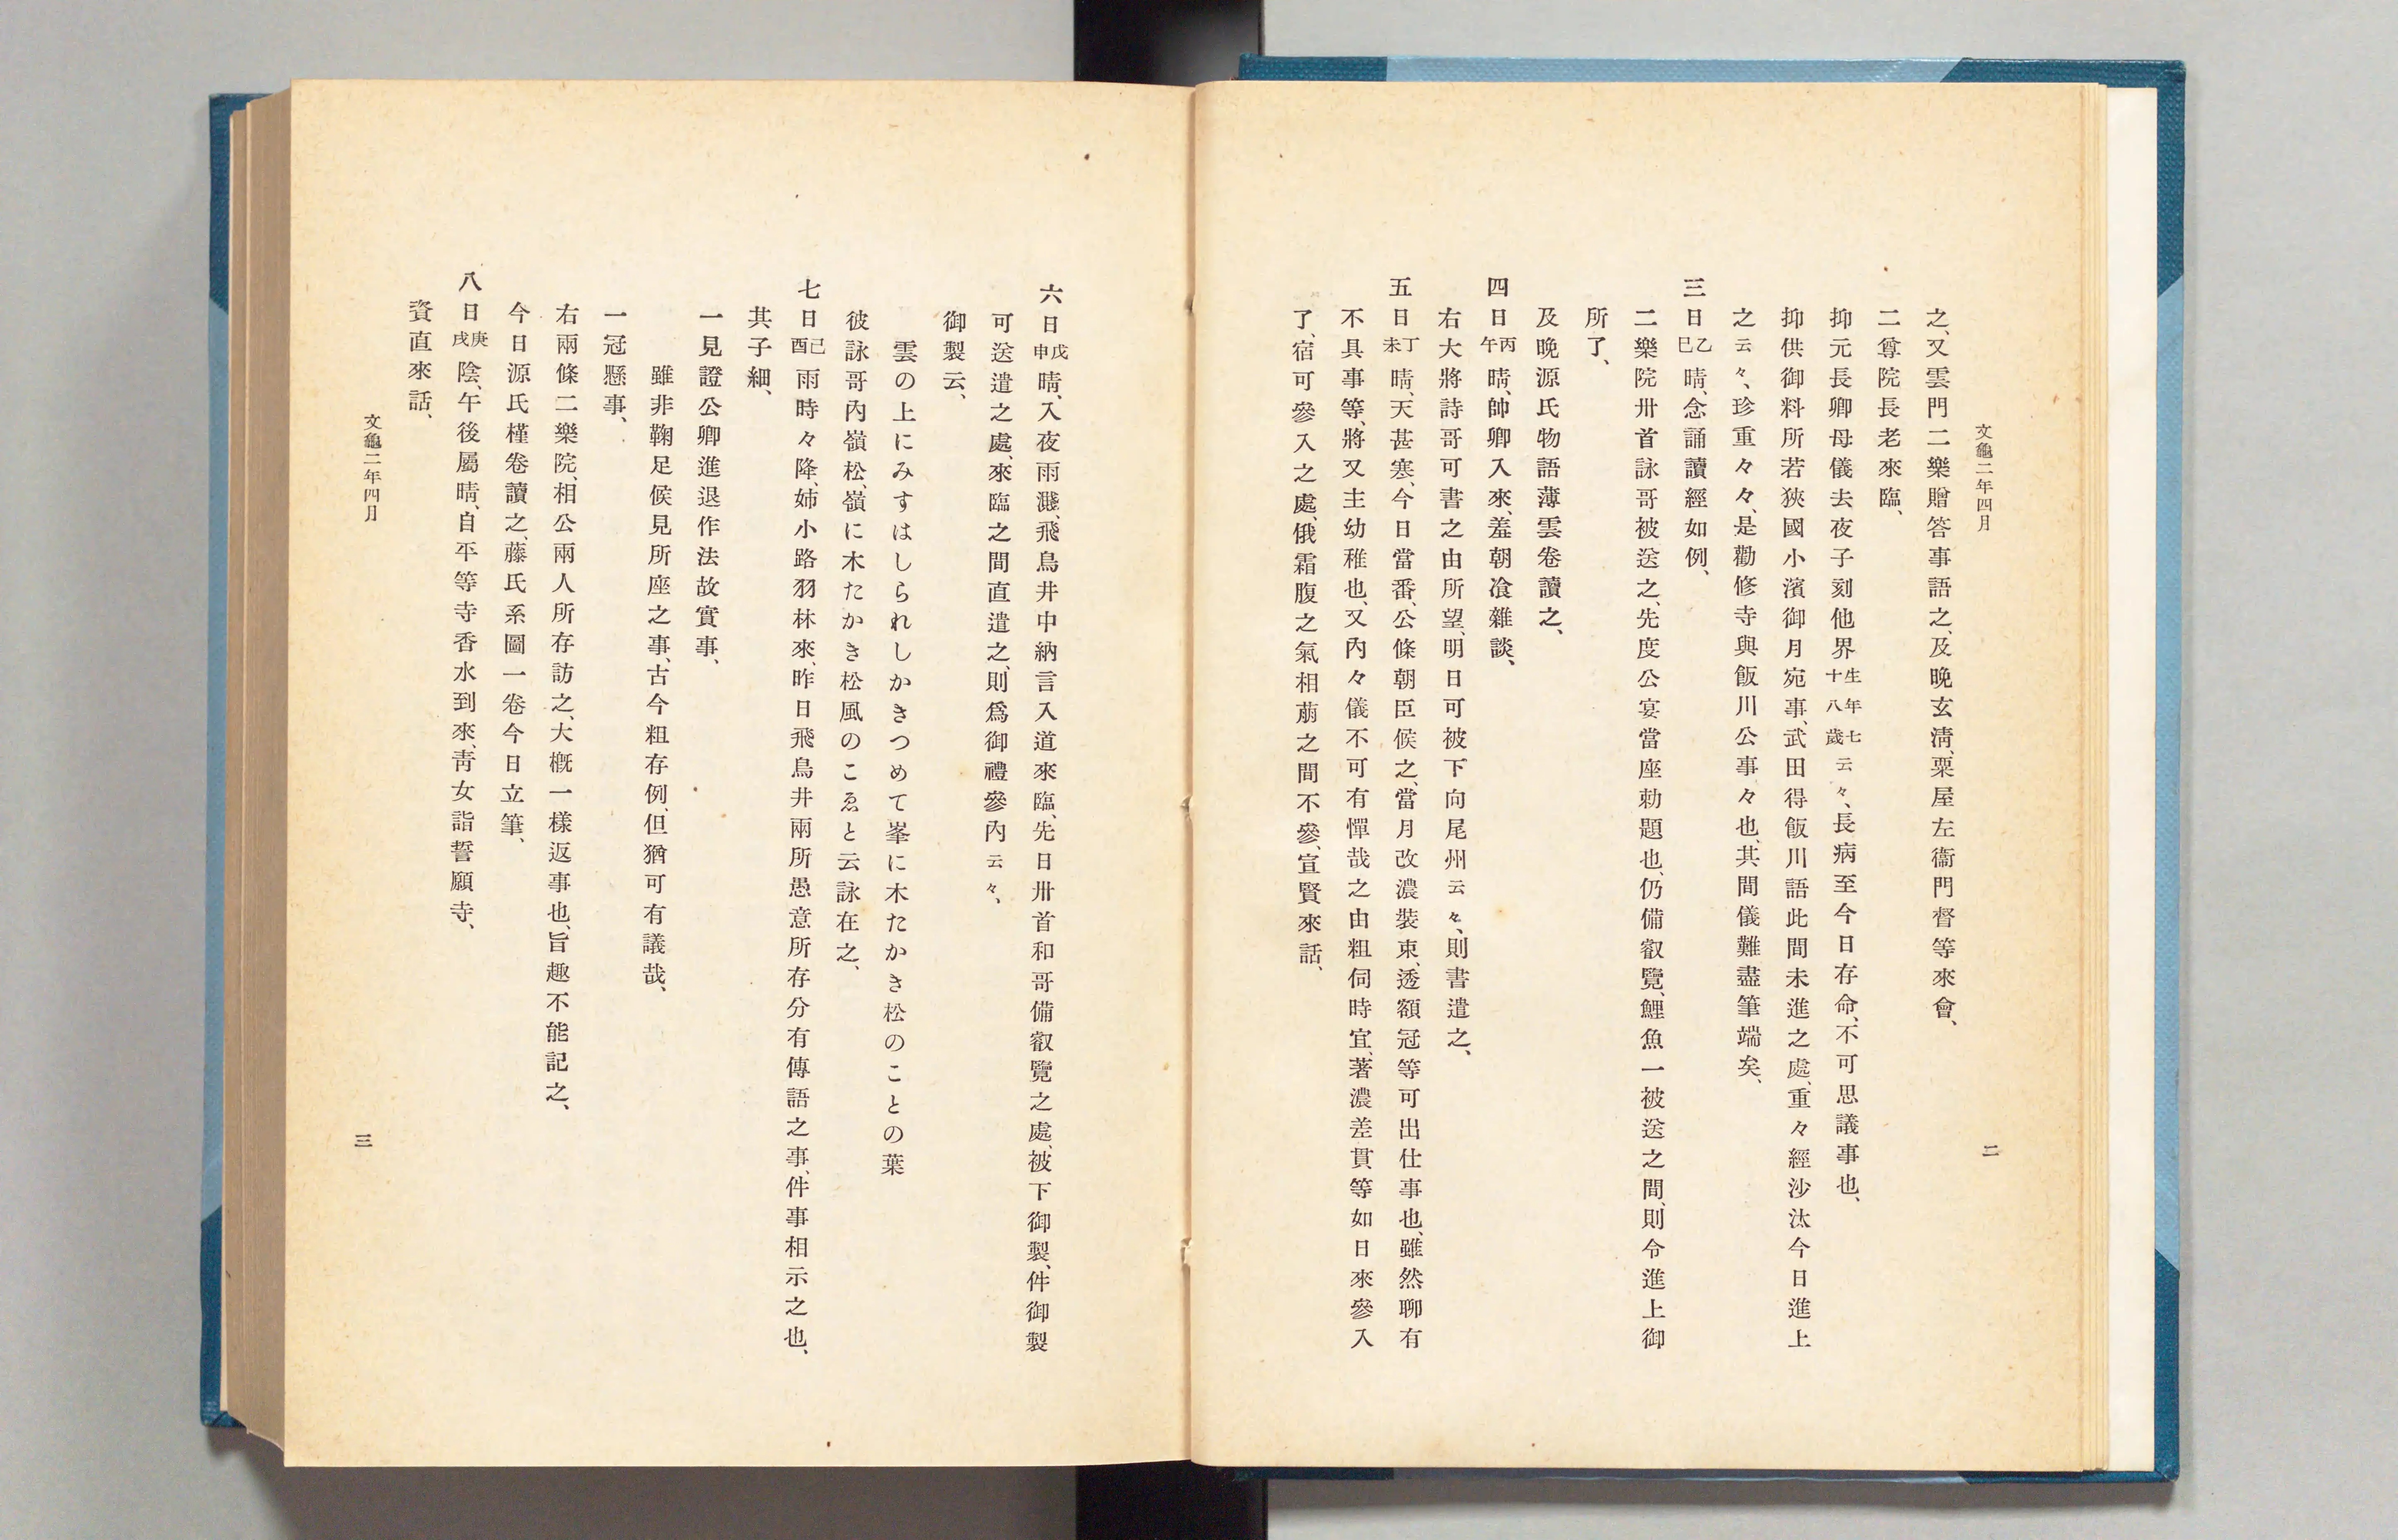 文龜二年四月
二
之、又雲門二樂贈答事語之、及晚玄淸、粟屋左衞門督等來會、
二尊院長老來臨、
抑元長卿母儀去夜子刻他界生年七十八歲云々、長病至今日存命、不可思議事也、
抑供御料所若狹國小濱御月宛事、武田得飯川語此間未進之處、重々經沙汰今日進上
之云々、珍重々々、是勸修寺與飯川公事々也、其間儀難盡筆端矣、
三日乙巳晴、念誦讀經如例、
二樂院卅首詠哥被送之、先度公宴當座勅題也、仍備叡覽、鯉魚一被送之間、則令進上御
所了、
及晚源氏物語薄雲卷讀之、
四日丙午晴、帥卿入來、羞朝飡雜談、
右大將詩哥可書之由所望、明日可被下向尾州云々、則書遣之、
五日丁未晴、天甚寒、今日當番、公條朝臣候之、當月改濃裝束、透額冠等可出仕事也、雖然聊有
不具事等、將又主幼稚也、又內々儀不可有憚哉之由粗伺時宜、著濃差貫等如日來參入
了、宿可參入之處、俄霜腹之氣相萠之間不參、宣賢來話、
六日戊申晴、入夜雨濺、飛鳥井中納言入道來臨、先日卅首和哥備叡覽之處、被下御製、件御製
可送遣之處、來臨之間直遣之、則爲御禮參內云々、
御製云、
雲の上にみすはしられしかきつめて峯に木たかき松のことの葉
彼詠哥內嶺松、嶺に木たかき松風のこゑと云詠在之、
七日己酉雨時々降、姉小路羽林來、昨日飛鳥井兩所愚意所存分有傳語之事、件事相示之也、
其子細、
一見證公卿進退作法故實事、
雖非鞠足候見所座之事、古今粗存例、但猶可有議哉、
一冠懸事、
右兩條二樂院、相公兩人所存訪之、大槪一樣返事也、旨趣不能記之、
今日源氏槿卷讀之、藤氏系圖一卷今日立筆、
八日庚戌陰、午後屬晴、自平等寺香水到來、靑女詣誓願寺、
資直來話、
文龜二年四月
三